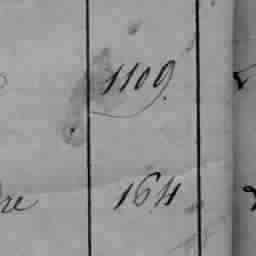 1109.
re 164